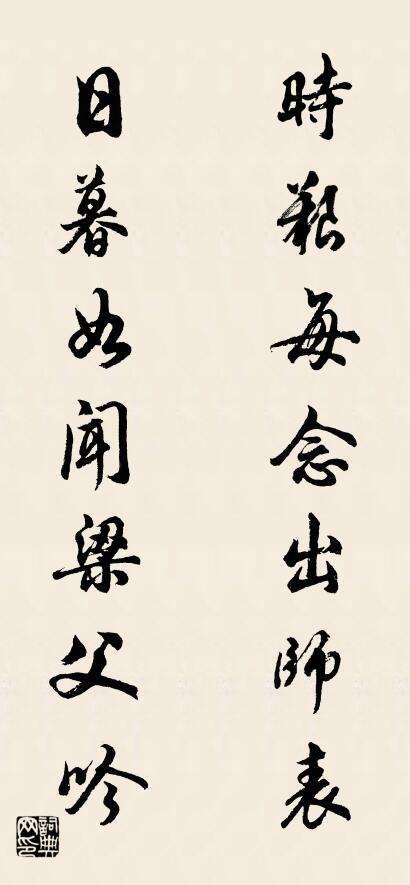 時艱每念出師表
日暮如聞梁父吟
詞典网印